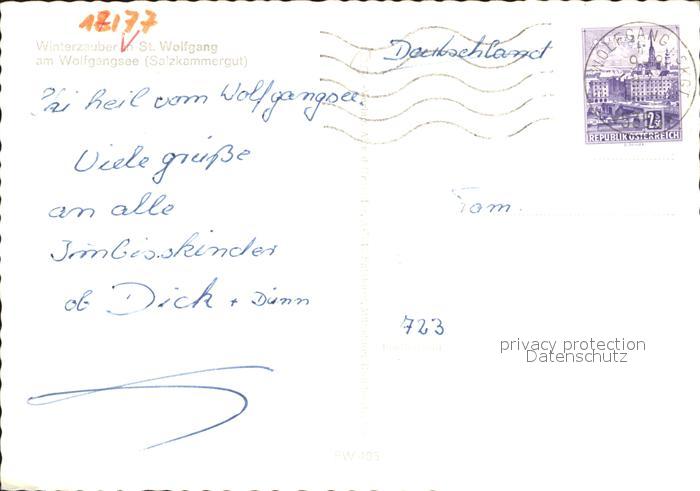 12177
Winterzauber in St. Wolfgang
am Wolfgangsee (Salzkammergut)
Deutschland
WOLFGANG
2 S
REPUBLIK ÖSTERREICH
Ski heil vom Wolfgangsee.
Viele grüße
an alle
Imbisskinder
ob Dick + Dünn
Fam.
723
privacy protection
Datenschutz